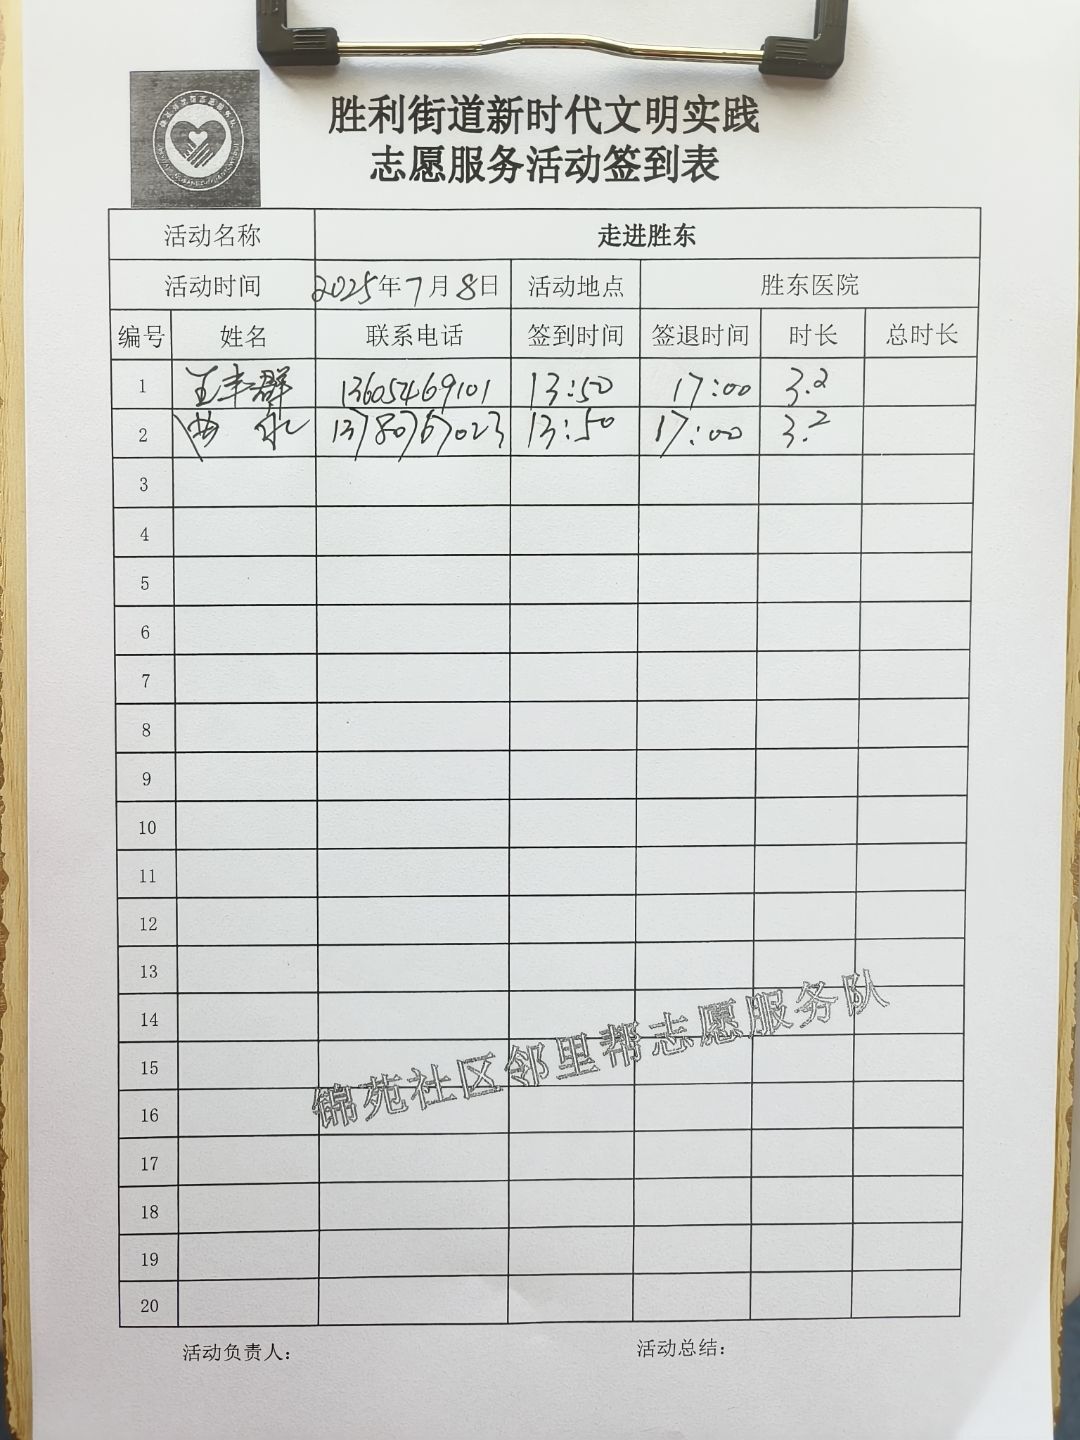 胜利街道新时代文明实践
志愿服务活动签到表
活动名称 走进胜东
活动时间 2025年7月8日 活动地点 胜东医院
编号 姓名 联系电话 签到时间 签退时间 时长 总时长
1 王丰群 13605469101 13:50 17:00 3.2
2 13780767023 13:50 17:00 3.2
3
4
5
6
7
8
9
10
11
12
13
14
15
16
17
18
19
20
锦苑社区邻里帮志愿服务队
活动负责人: 活动总结: